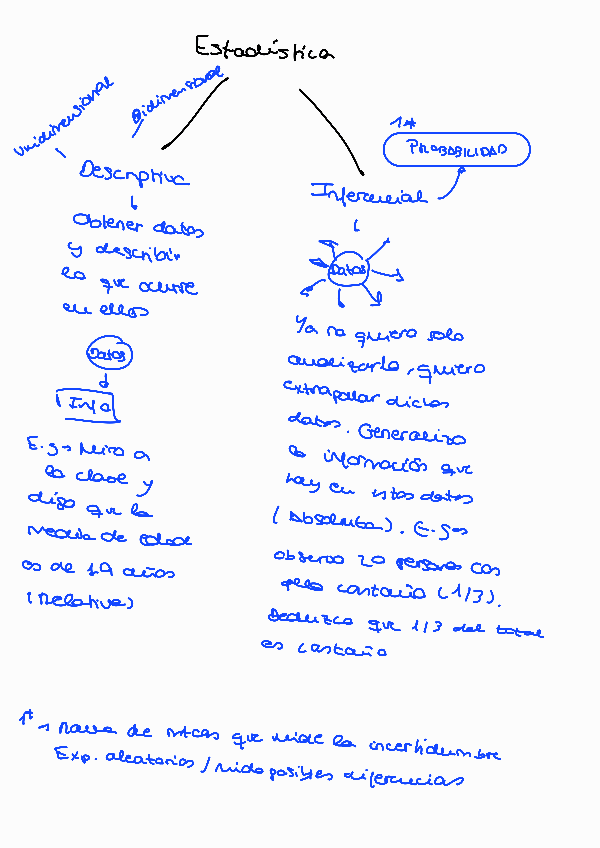 Estadística
Unidimensional
Bidimensional
1*
PROBABILIDAD
Descriptiva
Inferencial
Obtener datos
y describir
lo que ocurre
en ellos
Datos
Info
E.g → Miro a
la clase y
digo que la
media de edad
es de 19 años
(Relativa)
Datos
Ya no quiero solo
analizarlo, quiero
extrapolar dichos
datos. Generalizo
la información que
hay en estos datos
(Absoluta). E.g →
observo 20 personas con
pelo castaño (1/3).
Deduzco que 1/3 del total
es castaño
1* → Rama de mtcas que mide la incertidumbre
Exp. aleatorios / mido posibles diferencias